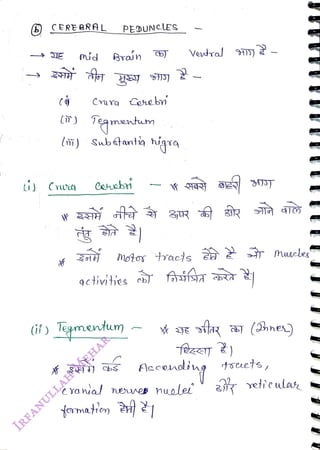 (b) CEREBRAL PEDUNCLES -
→ यह Mid Brain का Ventral भाग है -
→ इसमें तीन मुख्य भाग है -
(i) Crura Cerebri
(ii) Tegmentum
(iii) Substantia nigra
(i) Crura Cerebri - * सबसे बाहरी भाग
* इसमें नीचे से ऊपर की ओर जाने वाले
तंतु होते है।
* इनमें motor tracts होते है जो Muscles
activities को नियंत्रित करते है।
(ii) Tegmentum - * यह भीतर का (Inner)
हिस्सा है।
* इसमें कई Accending tracts,
cranial nerves nuclei और reticular
formation होती है।
IRFANULLAH SEHAR